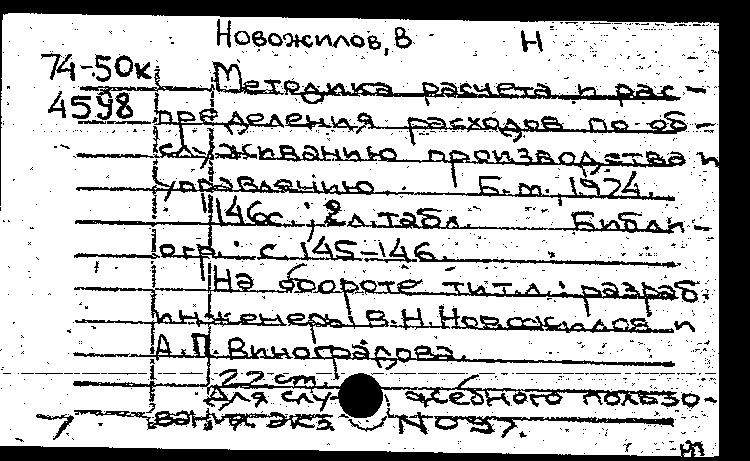 Новожилов, В Н
74-50к Методика расчета и рас-
4598 пределения расходов по об-
служиванию производства и
управлению. Б.м., 1974.
146с.; 2л.табл. Библи-
огр.: с 145-146.
На обороте тит.л.: разраб.
инженеры В.Н.Новожилов и
А.П.Виноградова.
22 см.
Для служебного пользо-
вания экз №